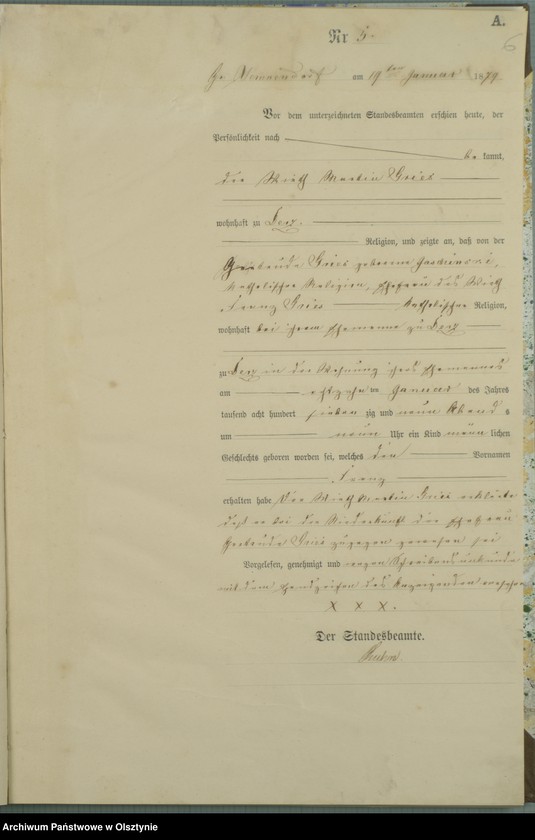 A.
6
Nr 5.
am 19ten Januar 1879
Vor dem unterzeichneten Standesbeamten erschien heute, der
Persönlichkeit nach
be kannt,
der Wirth Martin Gries
wohnhaft zu Derz.
Religion, und zeigte an, daß von der
Gertrude Gries geborene
katholischer Religion, Ehefrau des Wirth
Franz Gries katholischer Religion,
wohnhaft bei ihrem Ehemanne zu Derz
zu Derz in der Wohnung ihres Ehemannes
am achtzehnten Januar des Jahres
tausend acht hundert sieben zig und neun Abends
um neun Uhr ein Kind männ lichen
Geschlechts geboren worden sei, welches den Vornamen
Franz
erhalten habe Der Wirth Martin Gries erklärte
daß er bei der Niederkunft der Ehefrau
Gertrude Gries zugegen gewesen sei
Vorgelesen, genehmigt und wegen Schreibensunkunde
mit dem Handzeichen des Anzeigenden versehen
X X X.
Der Standesbeamte.
Archiwum Państwowe w Olsztynie